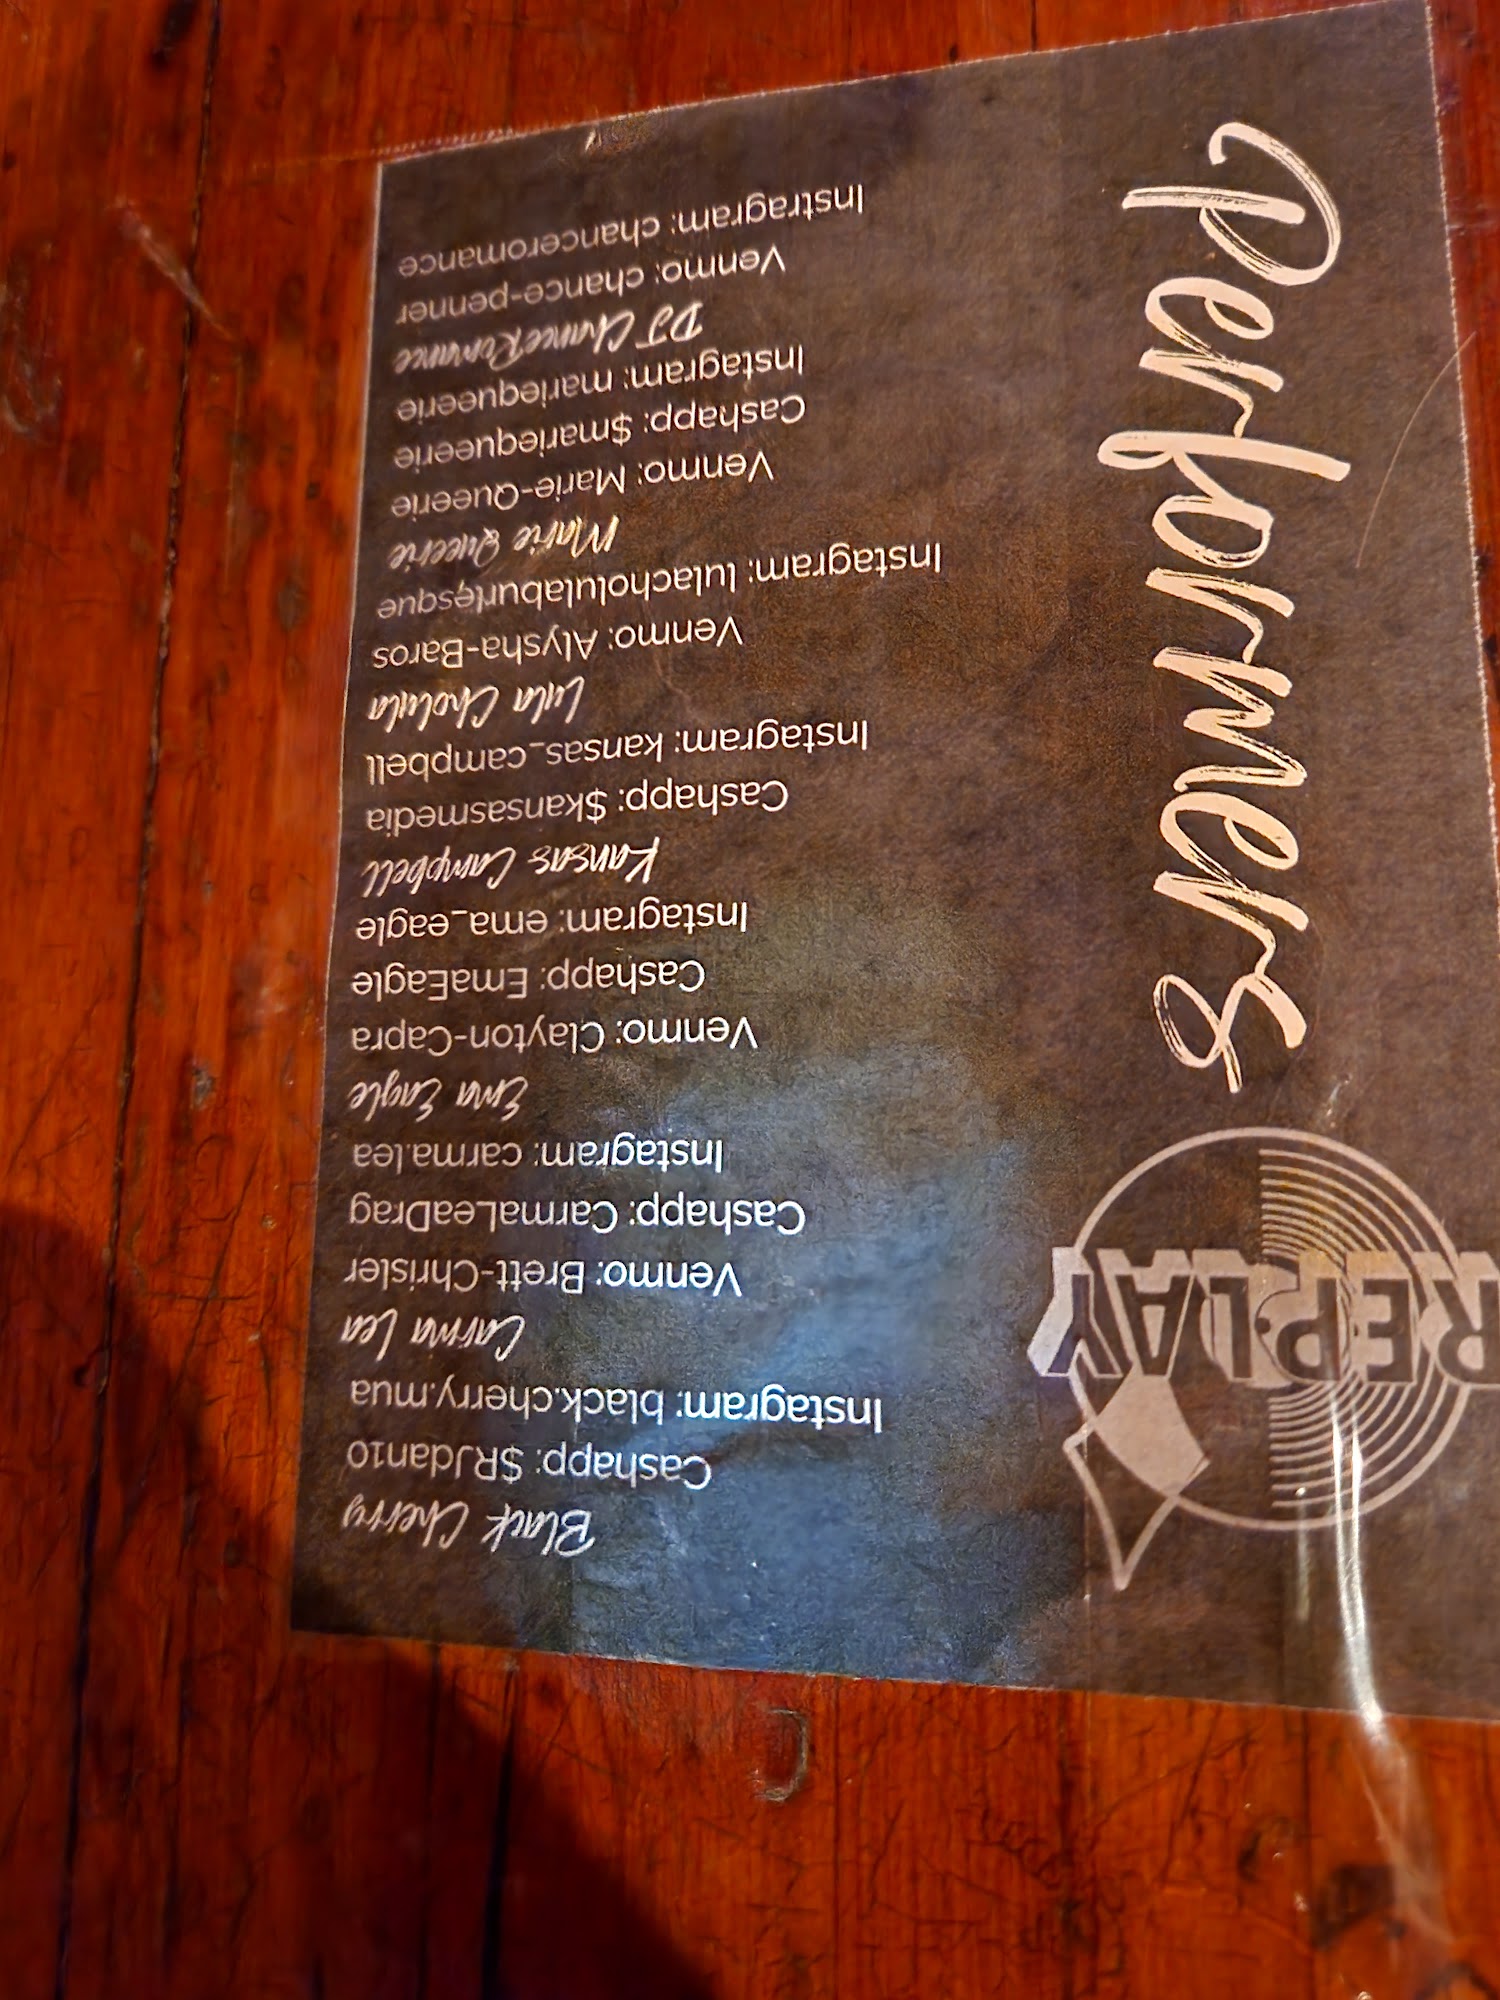 REPLAY
Performers
Black Cherry
Cashapp: $RJdan10
Instagram: black.cherry.mua
Carma Lea
Venmo: Brett-Chrisler
Cashapp: CarmaLeaDrag
Instagram: carma.lea
Ema Eagle
Venmo: Clayton-Capra
Cashapp: EmaEagle
Instagram: ema_eagle
Kansas Campbell
Cashapp: $kansasmedia
Instagram: kansas_campbell
Lula Cholula
Venmo: Alysha-Baros
Instagram: lulacholulaburlesque
Marie Queerie
Venmo: Marie-Queerie
Cashapp: $mariequeerie
Instagram: mariequeerie
DJ ChanceRomance
Venmo: chance-penner
Instragram: chanceromance